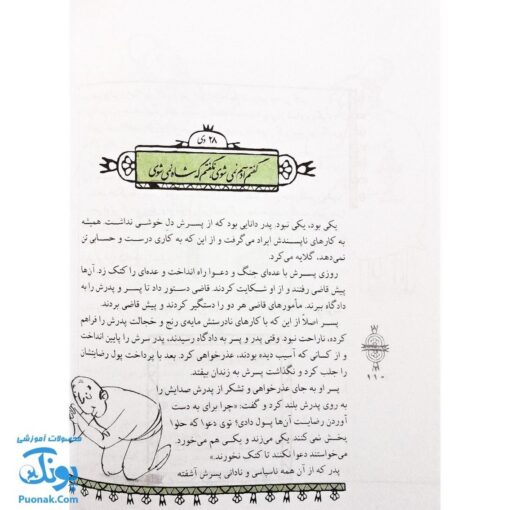 ۲۸ دی
گفتم آدم نمی شوی نگفتم که شاه نمی شوی
یکی بود، یکی نبود. پدر دانایی بود که از پسرش دل خوشی نداشت. همیشه
به کارهای ناپسندش ایراد می‌گرفت و از این که به کاری درست و حسابی تن
نمی‌دهد، گلایه می‌کرد.
روزی پسرش با عده‌ای جنگ و دعوا راه انداخت و عده‌ای را کتک زد. آن‌ها
پیش قاضی رفتند و از او شکایت کردند. قاضی دستور داد تا پسر و پدرش را به
دادگاه ببرند. مأمورهای قاضی هر دو را دستگیر کردند و پیش قاضی بردند.
پسر اصلاً از این که با کارهای نادرستش مایه‌ی رنج و خجالت پدرش را فراهم
کرده، ناراحت نبود. وقتی پدر و پسر به دادگاه رسیدند، پدر سرش را پایین انداخت
و از کسانی که آسیب دیده بودند، عذرخواهی کرد. بعد با پرداخت پول رضایتشان
را جلب کرد و نگذاشت پسرش به زندان بیفتد.
پسر او به جای عذرخواهی و تشکر از پدرش صدایش را
به روی پدرش بلند کرد و گفت: «چرا برای به دست
آوردن رضایت آن‌ها پول دادی؟ توی دعوا که حلوا
پخش نمی کنند. یکی می‌زند و یکی هم می‌خورد.
می‌خواستند دعوا نکنند تا کتک نخورند.»
پدر که از آن همه ناسپاسی و نادانی پسرش آشفته
۱۱۰
محصولات آموزشی
پونک
Puonak.Com